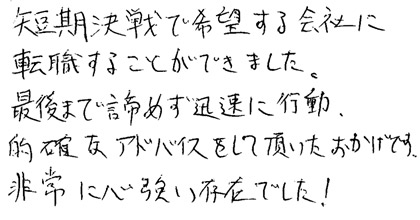 短期決戦で希望する会社に
転職することができました。
最後まで諦めず迅速に行動、
的確なアドバイスをして頂いたおかげです。
非常に心強い存在でした!